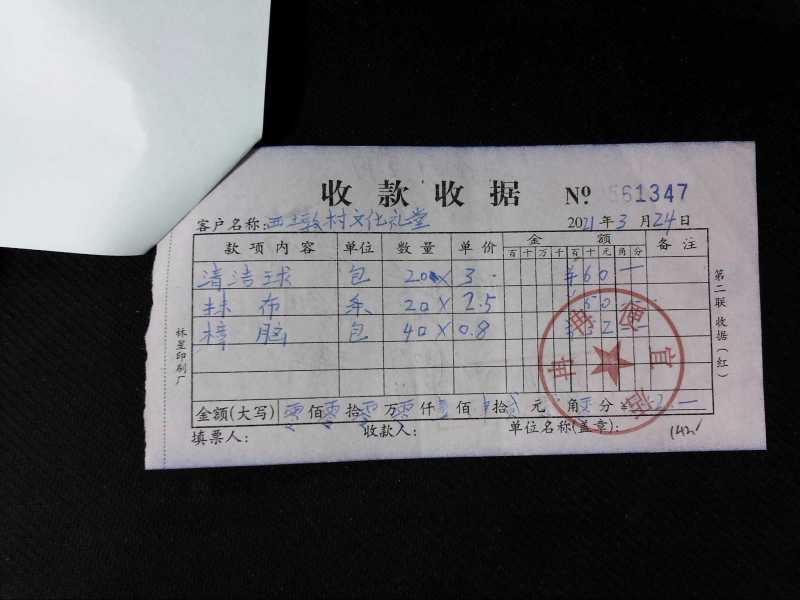 收款收据 № 561347
客户名称: 西土敦村文化礼堂 2021年3月24日
款项内容 单位 数量 单价 金额 备注
百十万千百十元角分
清洁球 包 20 × 3. ¥60—
抹布 条 20 × 2.5 50
樟脑 包 40 × 0.8 32—
金额(大写) 零佰零拾零万零仟 佰 拾贰元 角零分 ¥ 2.—
填票人: 收款人: 单位名称(盖章):
142
第二联收据(红)
林星印刷厂